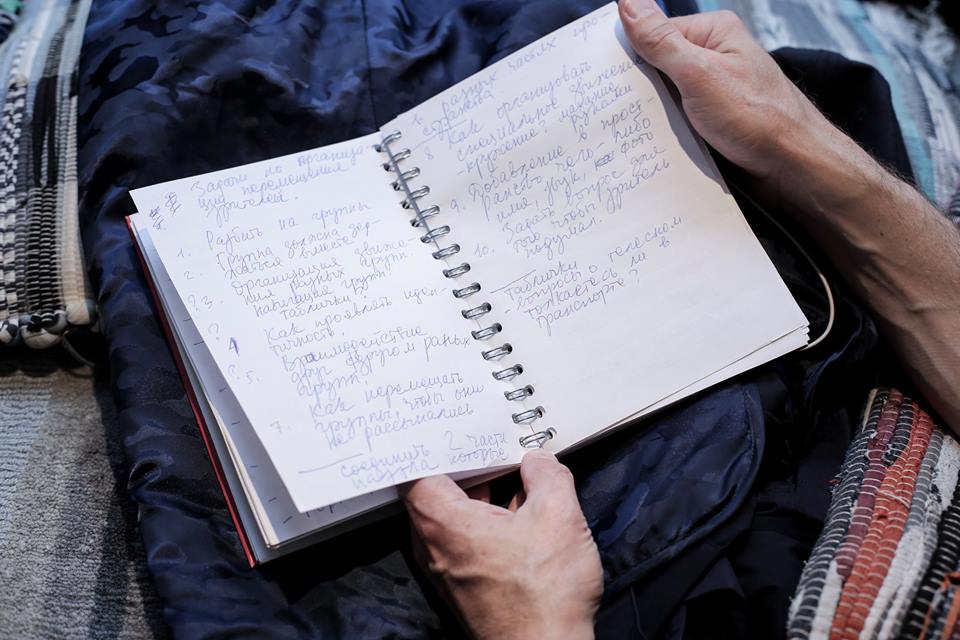 Задачи по организа-
ции перемещения
зрителей.
1. Разбить на группы
2. Группа должна дер-
жаться вместе
?3. Организация движе-
ния разных групп.
Навигация групп.
- таблички
? 4 Как проявлять иден-
тичность,
?5. Взаимодействие
друг другом разных
групп.
7. Как перемещать
группы, чтобы они
не рассыпались
соединить 2 части
пазла которые
в разных частях про-
странства
8. Как организовать
специальное движение
- кружение: макушки
кругами
9. Добавление в прост-
ранство чего-либо
имя, звук, фото
10. Задать вопрос для
того чтобы зритель
подумал.
- таблички
вопросы о телесном
толкаетесь ли в
транспорте?